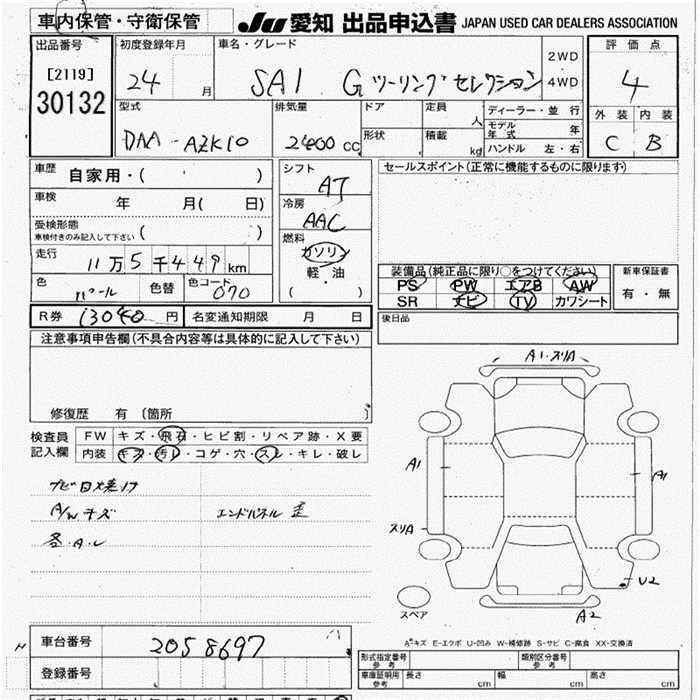 車内保管・守衛保管 JU 愛知 出品申込書 JAPAN USED CAR DEALERS ASSOCIATION
出品番号 初度登録年月 車名・グレード 評価点
[2119] 24 月 SAI G ツーリングセレクション 2WD 4WD 4
30132 外装 内装
型式 排気量 ドア 定員 人 ディーラー・並行
DAA-AZK10 2400 cc 形状 積載 kg モデル年式 年 C B
ハンドル 左・右
車歴 自家用・( ) シフト AT セールスポイント(正常に機能するものに限ります)
車検 年 月( 日) 冷房 AAC
受検形態
車検付きのみ記入して下さい ( ) 燃料
走行 11万5千449km ガソリン
軽・油
( )
装備品(純正品に限り○をつけてください) 新車保証書
色 パール 色替 色コード 070 PS PW エアB AW 有・無
SR ナビ TV カワシート
R券 13040円 名変通知期限 月 日 後日品
注意事項申告欄(不具合内容等は具体的に記入して下さい)
A1・スリA
修復歴 有 〔箇所 〕
検査員 FW キズ・飛石・ヒビ割・リペア跡・X要
記入欄 内装 キズ・汚レ・コゲ・穴・スレ・キレ・破レ
A1 A1
ナビ日焼け
A/W キズ エンドパネル 歪
スリA
各・A・U
U2
スペア A2
A-キズ E-エクボ U-凹み W-補修跡 S-サビ C-腐食 XX-交換済
車台番号 2058697
型式指定番号 参考 類別区分番号 参考
登録番号 車庫証明用 参考 長さ cm 幅 cm 高さ cm